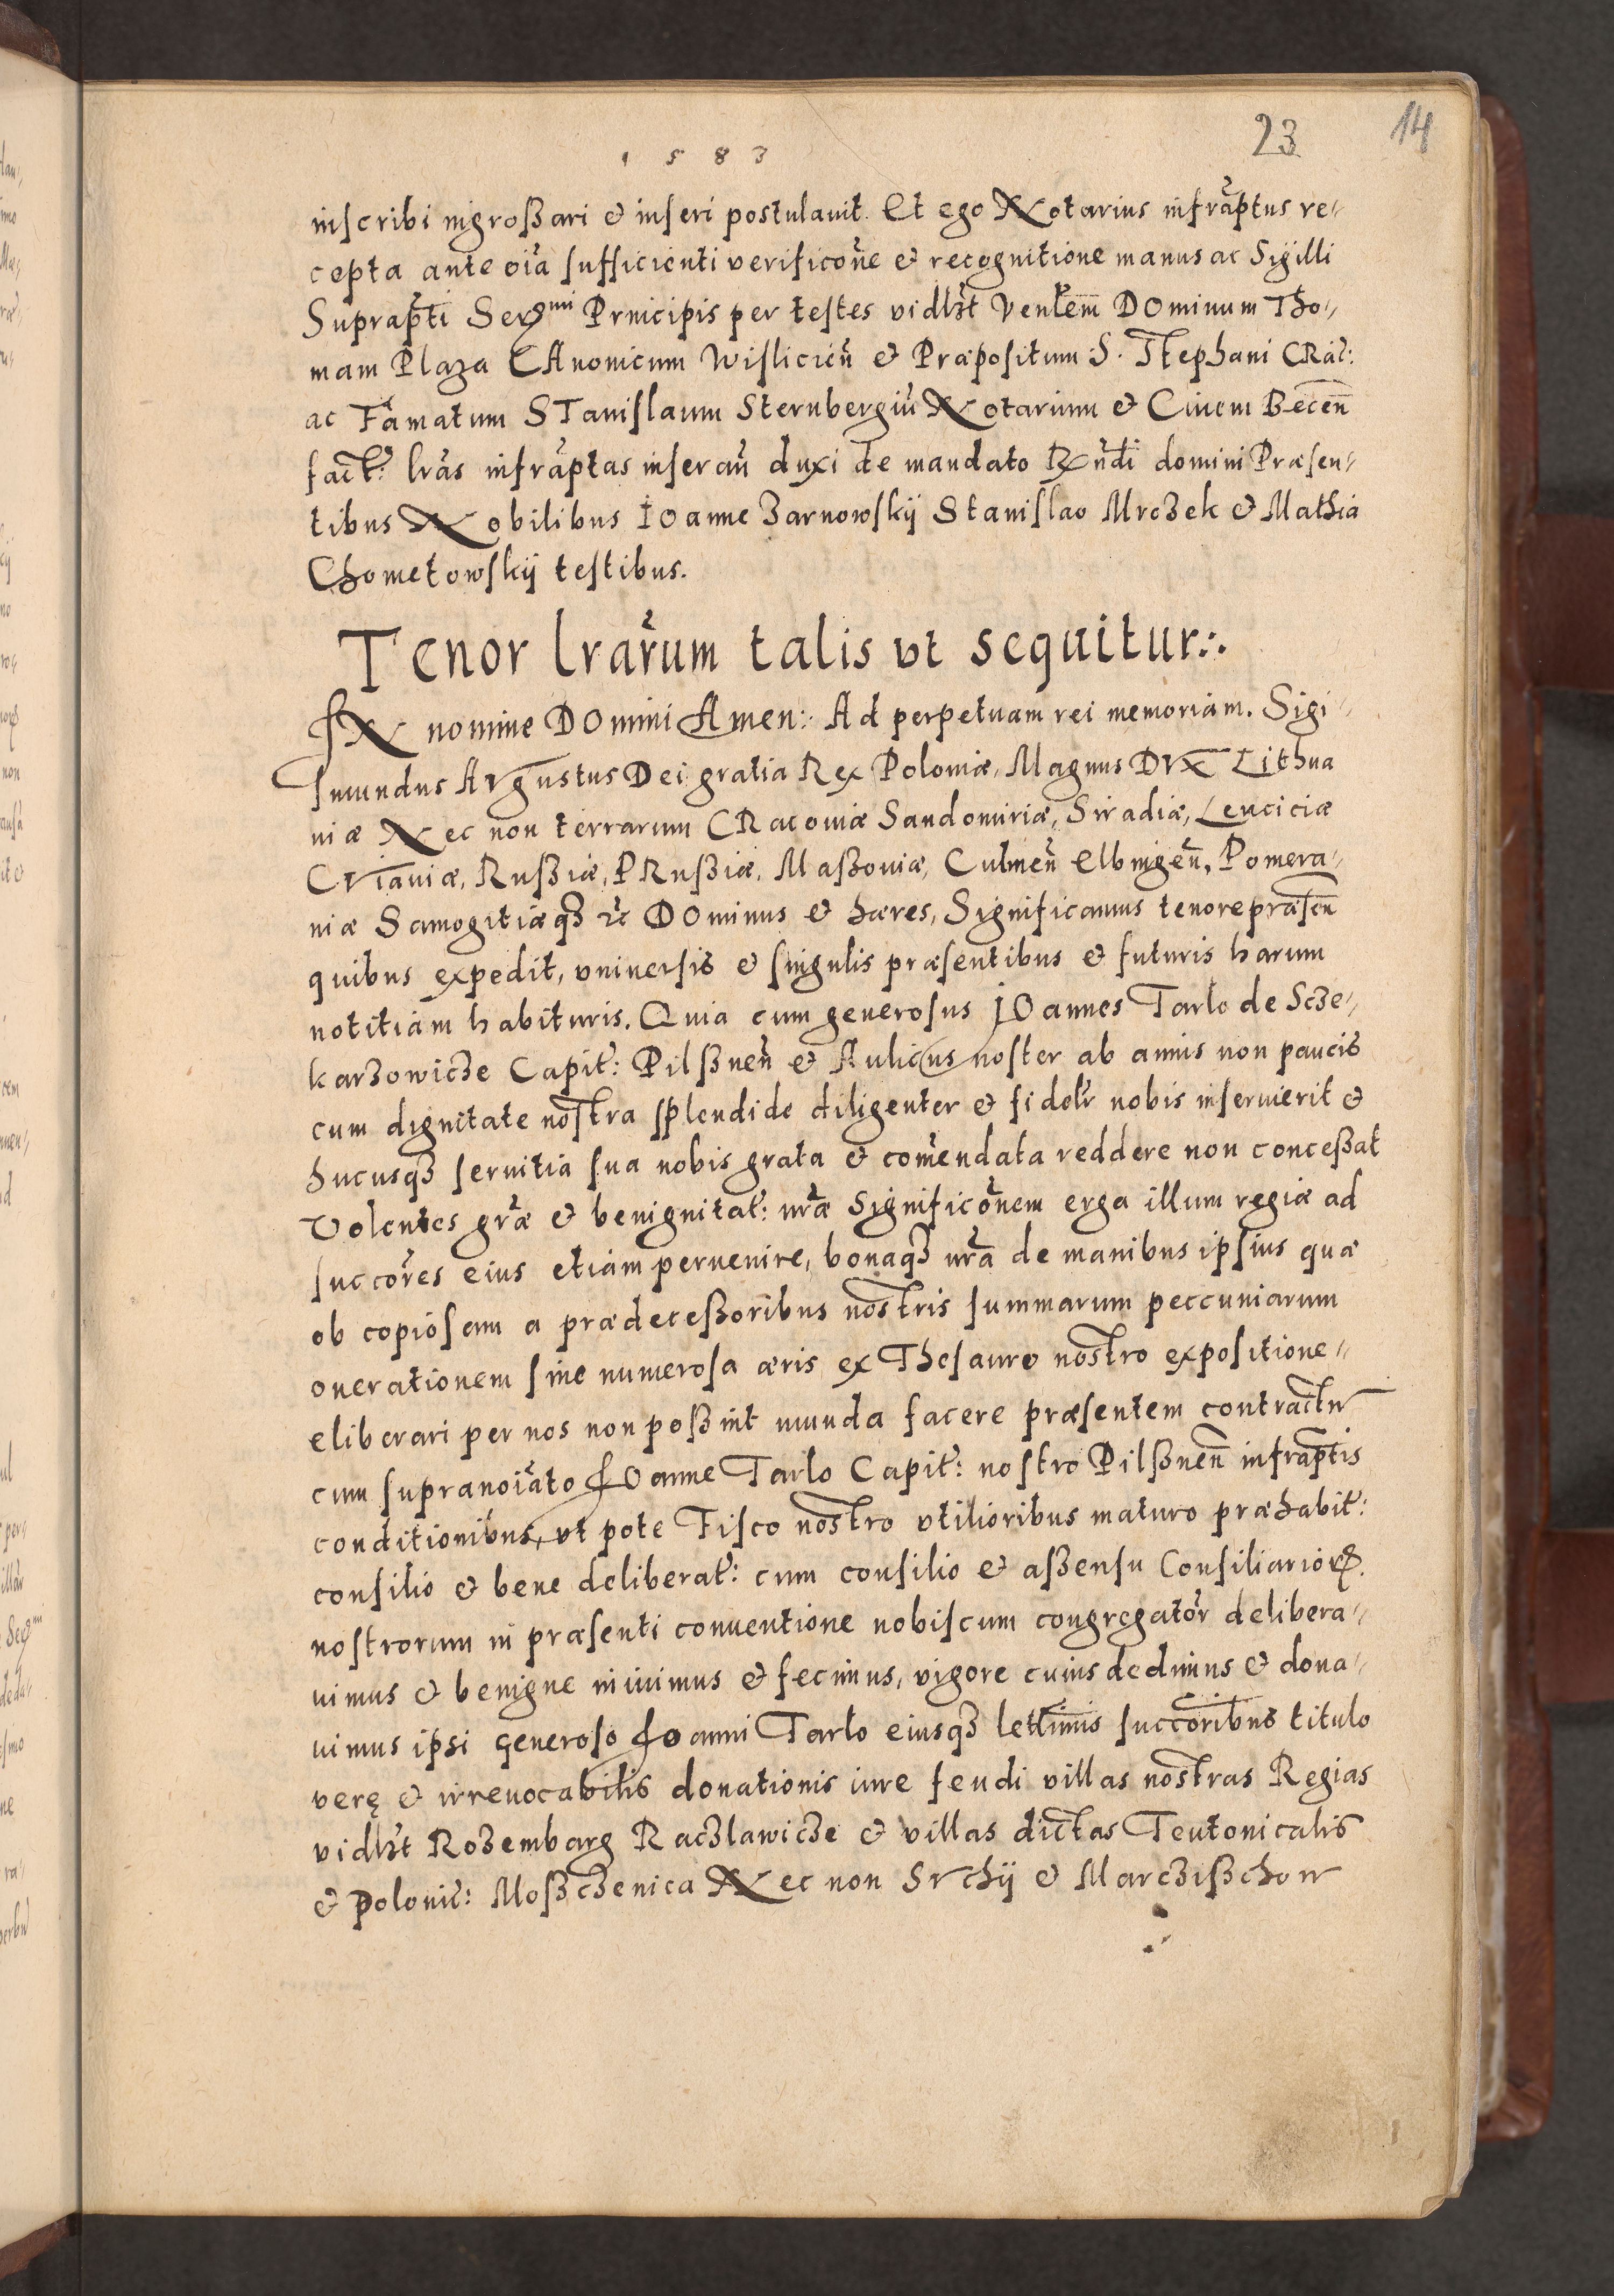 1583
23
14
inscribi ingroßari & inseri postulauit. Et ego Notarius infrãptus re⸗
cepta ante oĩa sufficienti verificoñe & recognitione manus ac Sigilli
Suprapt̃i Ser^mi Principis per testes vidlʒt Venl̃em DOminum Tho⸗
mam Plaza CAnonicum Wislicieñ & Præpositum S. Stephani CRac̃:
ac Famatum STanislaum Sternbergiũ Notarium & Ciuem Beceñ
fact̃: lr̃as infrãptas inseraũ duxi de mandato Rñdi domini Præsen⸗
tibus Nobilibus IOanne Zarnowskij Stanislao Mrozek & Mathia
Chometowskij testibus.
Tenor lrar̃um talis vt sequitur:.
IN nomine DOmini Amen: Ad perpetuam rei memoriam. Sigi⸗
smundus Avgustus Dei gratia Rex Poloniæ, Magnus DVX Lithua
niæ Nec non terrarum CRacouiæ Sandomiriæ, Siradiæ, Lenciciæ
CViauiæ, Rußiæ, PRußiæ, Maßouiæ, Culmeñ Elbingeñ, Pomera⸗
niæ Samogitiæqʒ ec̃ DOminus & hæres, Significamus tenore præseñ
quibus expedit, vniuersis & singulis præsentibus & futuris harum
notitiam habituris. Quia cum generosus IOannes Tarlo de Scze⸗
karzowicze Capit̃: Pilßneñ & Aulicus noster ab annis non paucis
cum dignitate nostra splendide diligenter & fidelr̃ nobis inseruierit &
hucusqʒ seruitia sua nobis grata & com̃endata reddere non conceßat
Volentes gr̃æ & benignitat̃: nr̃æ Significoñem erga illum regiæ ad
succor̃es eius etiam peruenire, bonaqʒ nr̃a de manibus ipsius quæ
ob copiosam a prædeceßoribus nostris summarum peccuniarum
onerationem sine numerosa æris ex Thesauro nostro expositione⸗
eliberari per nos non poßint munda facere præsentem contractũ
cum supranoĩato IOanne Tarlo Capit̃: nostro Pilßneñ infrapt̃is
conditionibus, vt pote Fisco nostro vtilioribus maturo præhabit̃:
consilio & bene deliberat̃: cum consilio & aßensu Consiliarioꝝ.
nostrorum in præsenti conuentione nobiscum congregator̃ delibera⸗
uimus & benigne iniuimus & fecimus, vigore cuius dedimus & dona⸗
uimus ipsi generoso Ioanni Tarlo eiusqʒ letl̃imis succor̃ibus titulo
verę & irreuocabilis donationis iure feudi villas nostras Regias
vidlʒt Rozembarg Raczlawicze & villas dictas Teutonicalis
& Polonic̃: Moßczenica Nec non SVchij & Marczißchow